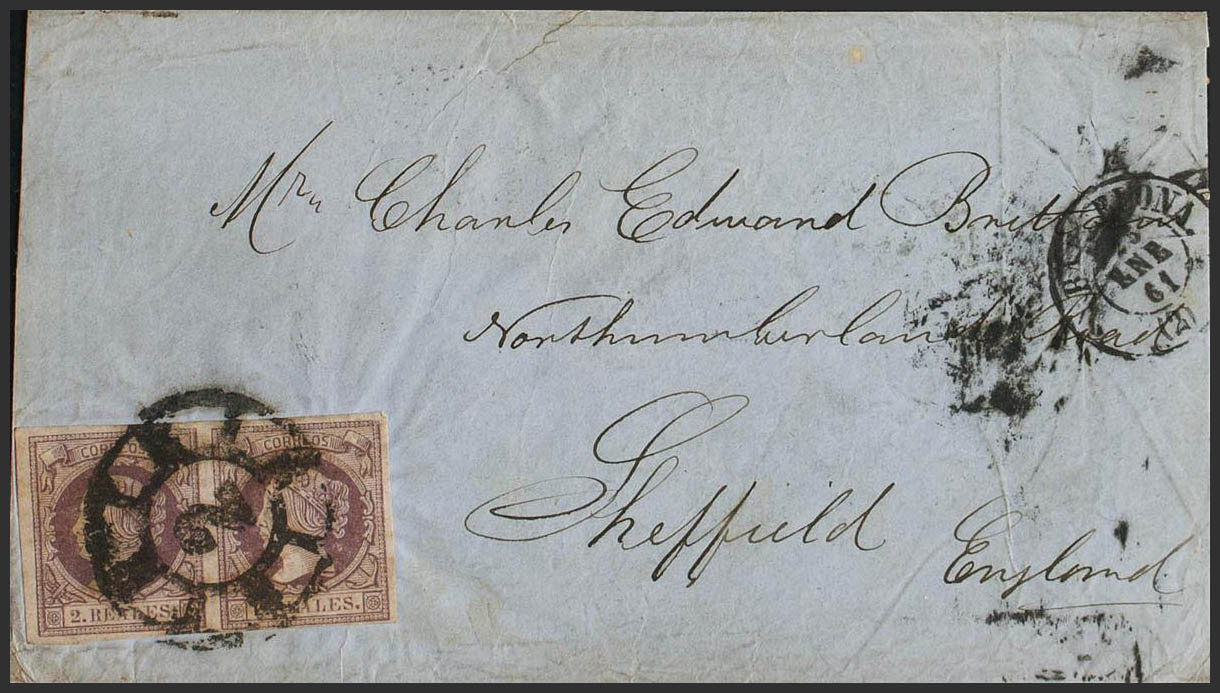 Mr. Charles Edward Brittain
Northumberland Road
Sheffield
England
BARCELONA
ENE
61
(2)
CORREOS CORREOS
2
2. REALES. REALES.